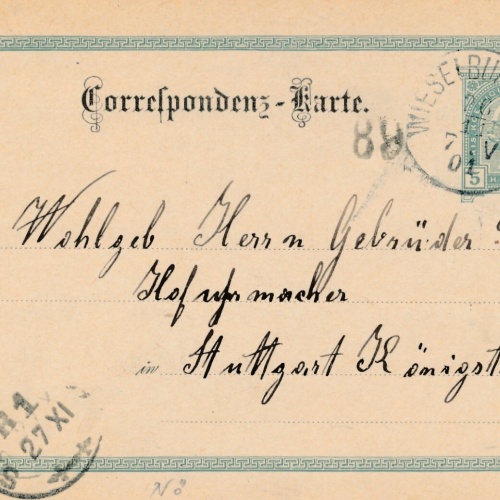 Correspondenz-Karte.
WIESELBU
88
7
V
01
5 H
Wohlgeb Herrn Gebrüder
Hofuhrmacher
in Stuttgart Königst
R 1
27 XI
NÖ